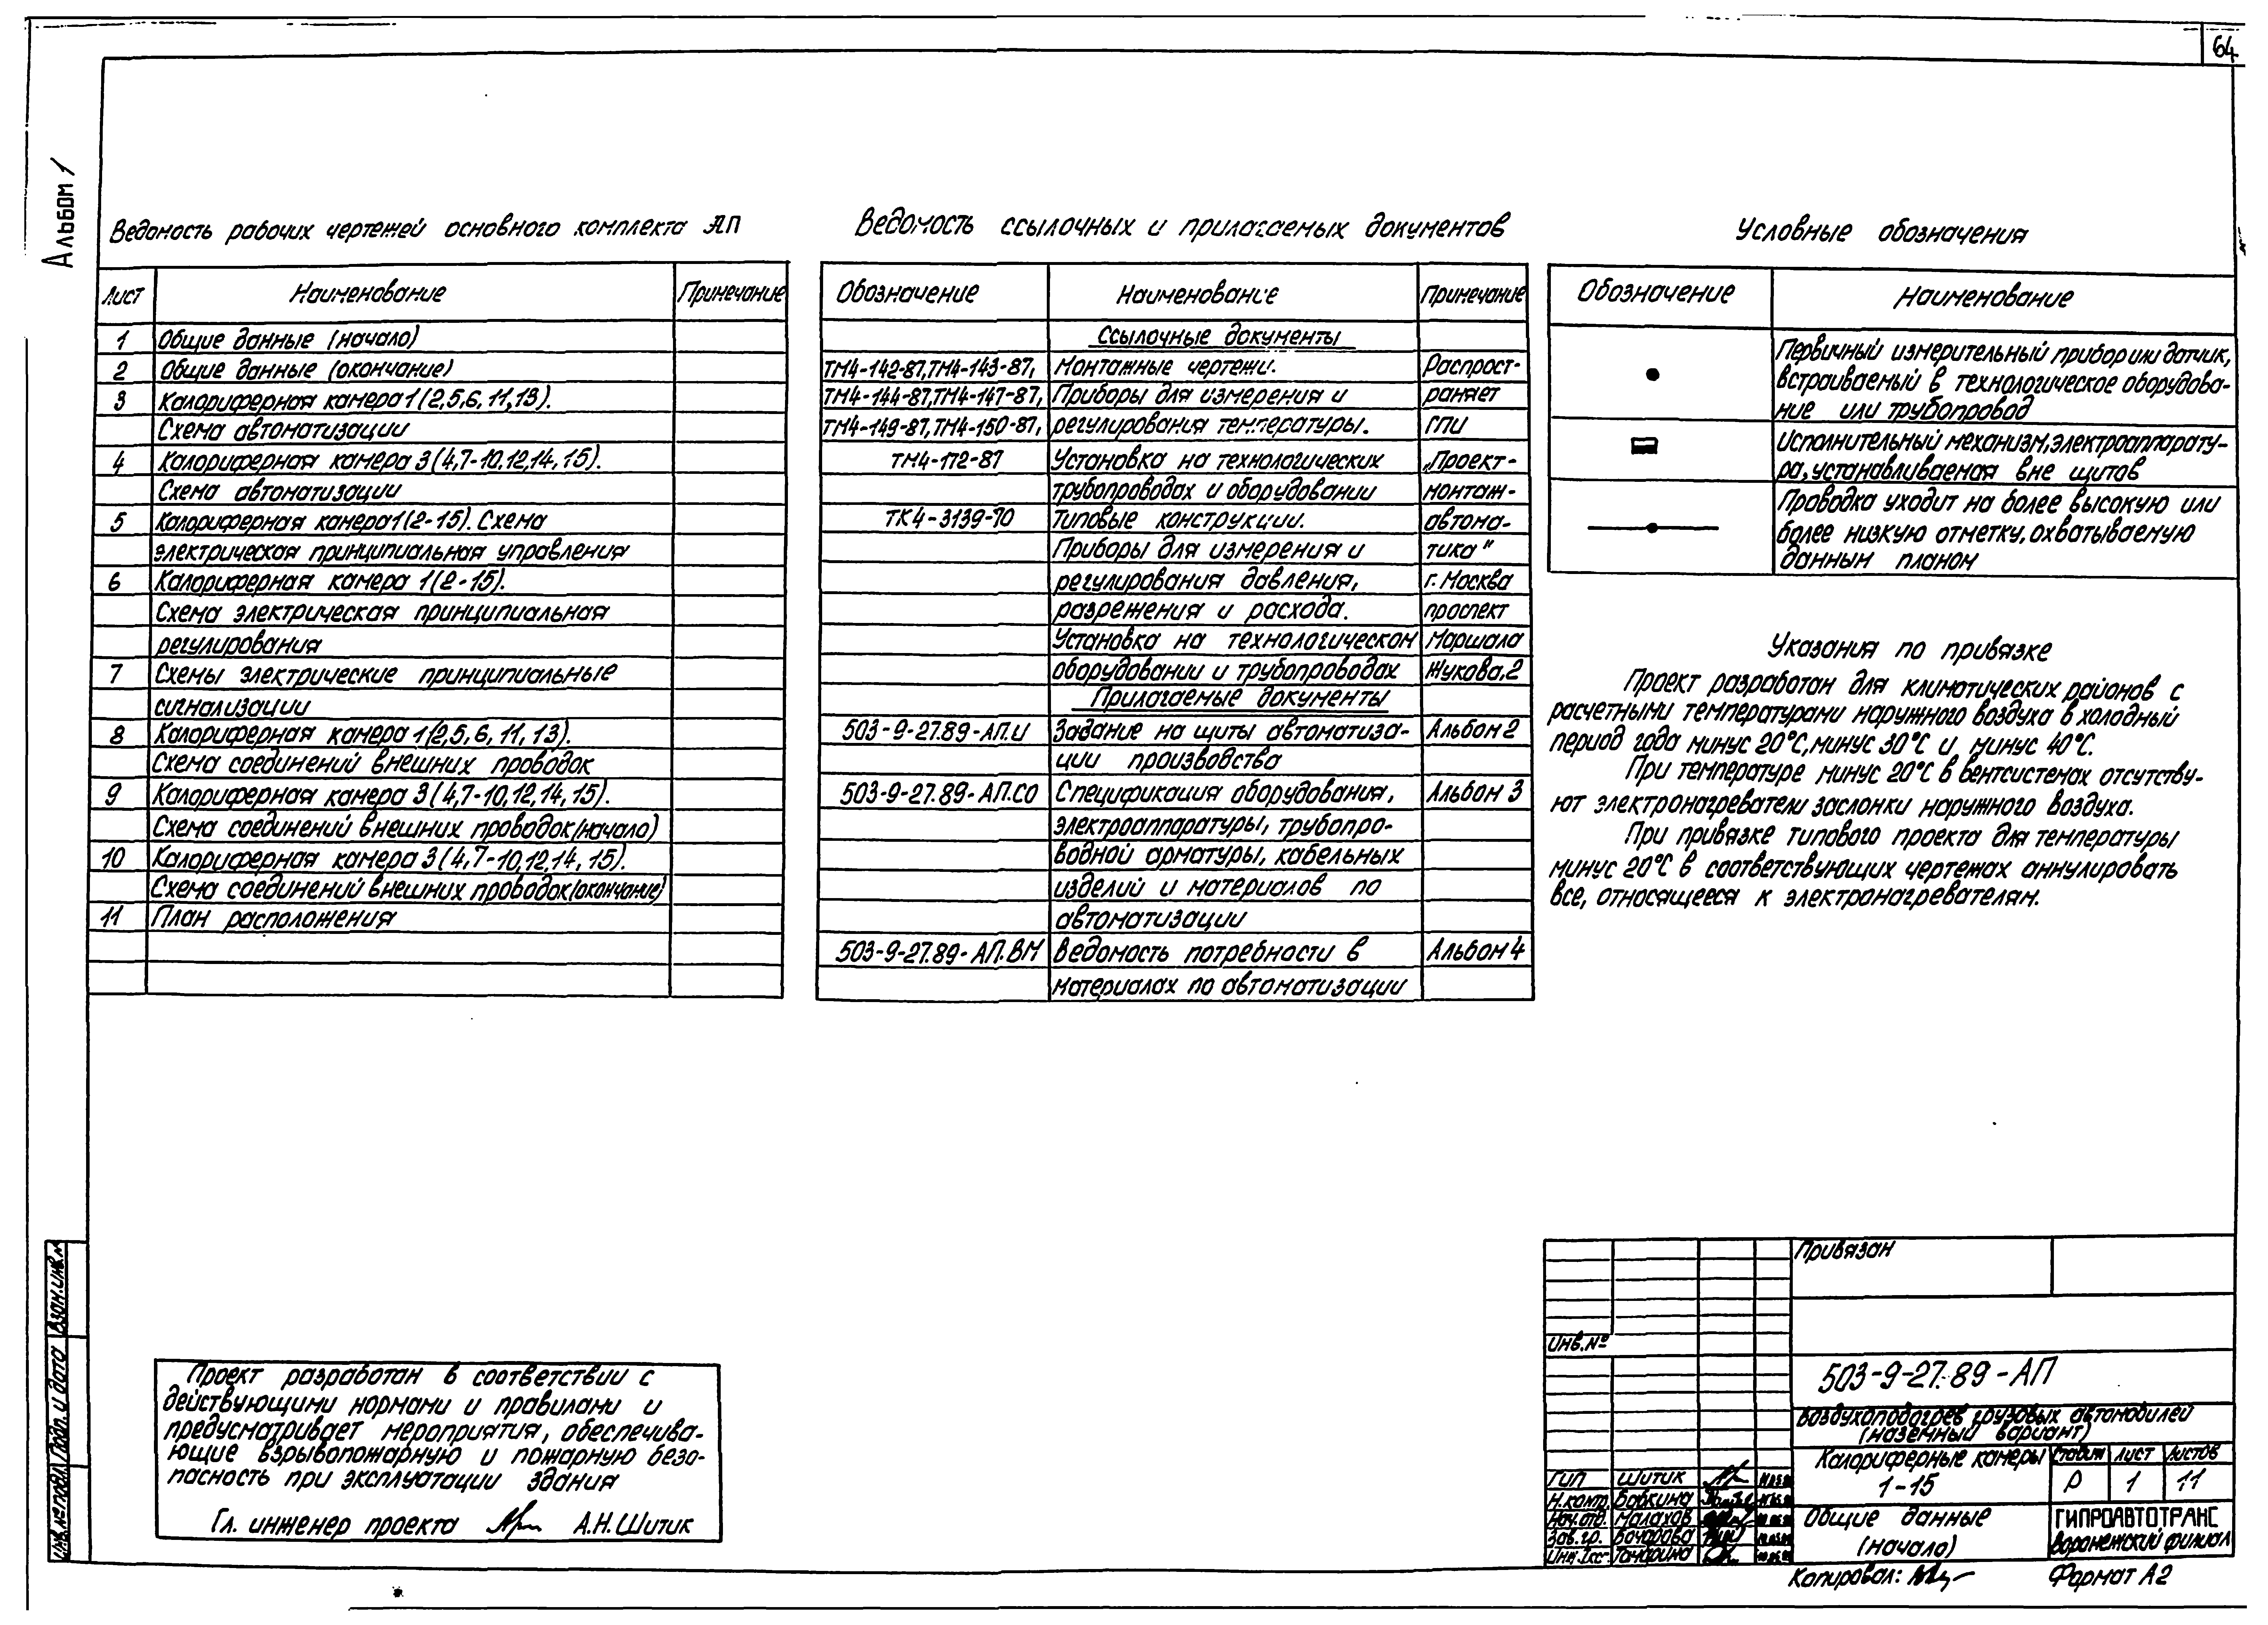 64
Альбом 1
Ведомость рабочих чертежей основного комплекта АП
Лист Наименование Примечание
1 Общие данные (начало)
2 Общие данные (окончание)
3 Калориферная камера 1 (2,5,6,11,13).
Схема автоматизации
4 Калориферная камера 3 (4,7-10,12,14,15).
Схема автоматизации
5 Калориферная камера 1 (2-15). Схема
электрическая принципиальная управления
6 Калориферная камера 1 (2-15).
Схема электрическая принципиальная
регулирования
7 Схемы электрические принципиальные
сигнализации
8 Калориферная камера 1 (2,5,6,11,13).
Схема соединений внешних проводок
9 Калориферная камера 3 (4,7-10,12,14,15).
Схема соединений внешних проводок (начало)
10 Калориферная камера 3 (4,7-10,12,14,15).
Схема соединений внешних проводок (окончание)
11 План расположения
Ведомость ссылочных и прилагаемых документов
Обозначение Наименование Примечание
Ссылочные документы
ТМ4-142-87, ТМ4-143-87, Монтажные чертежи. Распрост-
ТМ4-144-87, ТМ4-147-87, Приборы для измерения и раняет
ТМ4-149-87, ТМ4-150-87, регулирования температуры. ГПИ
ТМ4-172-87 Установка на технологических „Проект-
трубопроводах и оборудовании монтаж-
ТК4-3139-70 Типовые конструкции. автома-
Приборы для измерения и тика"
регулирования давления, г. Москва
разрежения и расхода. проспект
Установка на технологическом Маршала
оборудовании и трубопроводах Жукова,2
Прилагаемые документы
503-9-27.89-АП.И Задание на щиты автоматиза- Альбом 2
ции производства
503-9-27.89-АП.СО Спецификация оборудования, Альбом 3
электроаппаратуры, трубопро-
водной арматуры, кабельных
изделий и материалов по
автоматизации
503-9-27.89-АП.ВМ Ведомость потребности в Альбом 4
материалах по автоматизации
Условные обозначения
Обозначение Наименование
Первичный измерительный прибор или датчик,
встраиваемый в технологическое оборудова-
ние или трубопровод
Исполнительный механизм, электроаппарату-
ра, устанавливаемая вне щитов
Проводка уходит на более высокую или
более низкую отметку, охватываемую
данным планом
Указания по привязке
Проект разработан для климатических районов с
расчетными температурами наружного воздуха в холодный
период года минус 20°С, минус 30°С и минус 40°С.
При температуре минус 20°С в вентсистемах отсутству-
ют электронагреватели заслонки наружного воздуха.
При привязке типового проекта для температуры
минус 20°С в соответствующих чертежах аннулировать
все, относящееся к электронагревателям.
Проект разработан в соответствии с
действующими нормами и правилами и
предусматривает мероприятия, обеспечива-
ющие взрывопожарную и пожарную безо-
пасность при эксплуатации здания
Гл. инженер проекта А.Н. Шитик
Инв.№ подл. Подп. и дата Взам.инв.№
Привязан
Инв.№
503-9-27.89-АП
Воздухоподогрев грузовых автомобилей
(наземный вариант)
Калориферные камеры
1-15
Стадия Лист Листов
Р 1 11
ГИП Шитик
Н.контр. Бабкина
Нач.отд. Малахов
Зав.гр. Бочарова
Общие данные
(начало)
ГИПРОАВТОТРАНС
Воронежский филиал
Копировал:
Формат А2